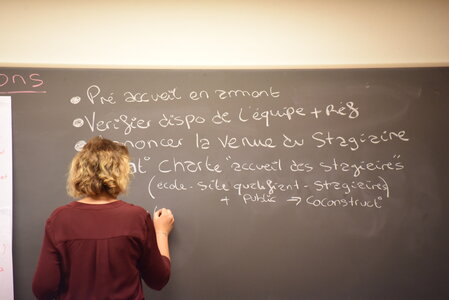 ons
• Pré accueil en amont
• Verifier dispo de l'équipe + Réf
• noncer la venue du Stagiaire
at° Charte "accueil des stagiaires"
(école - site qualifiant - Stagiaires)
+ Public → Coconstruct°